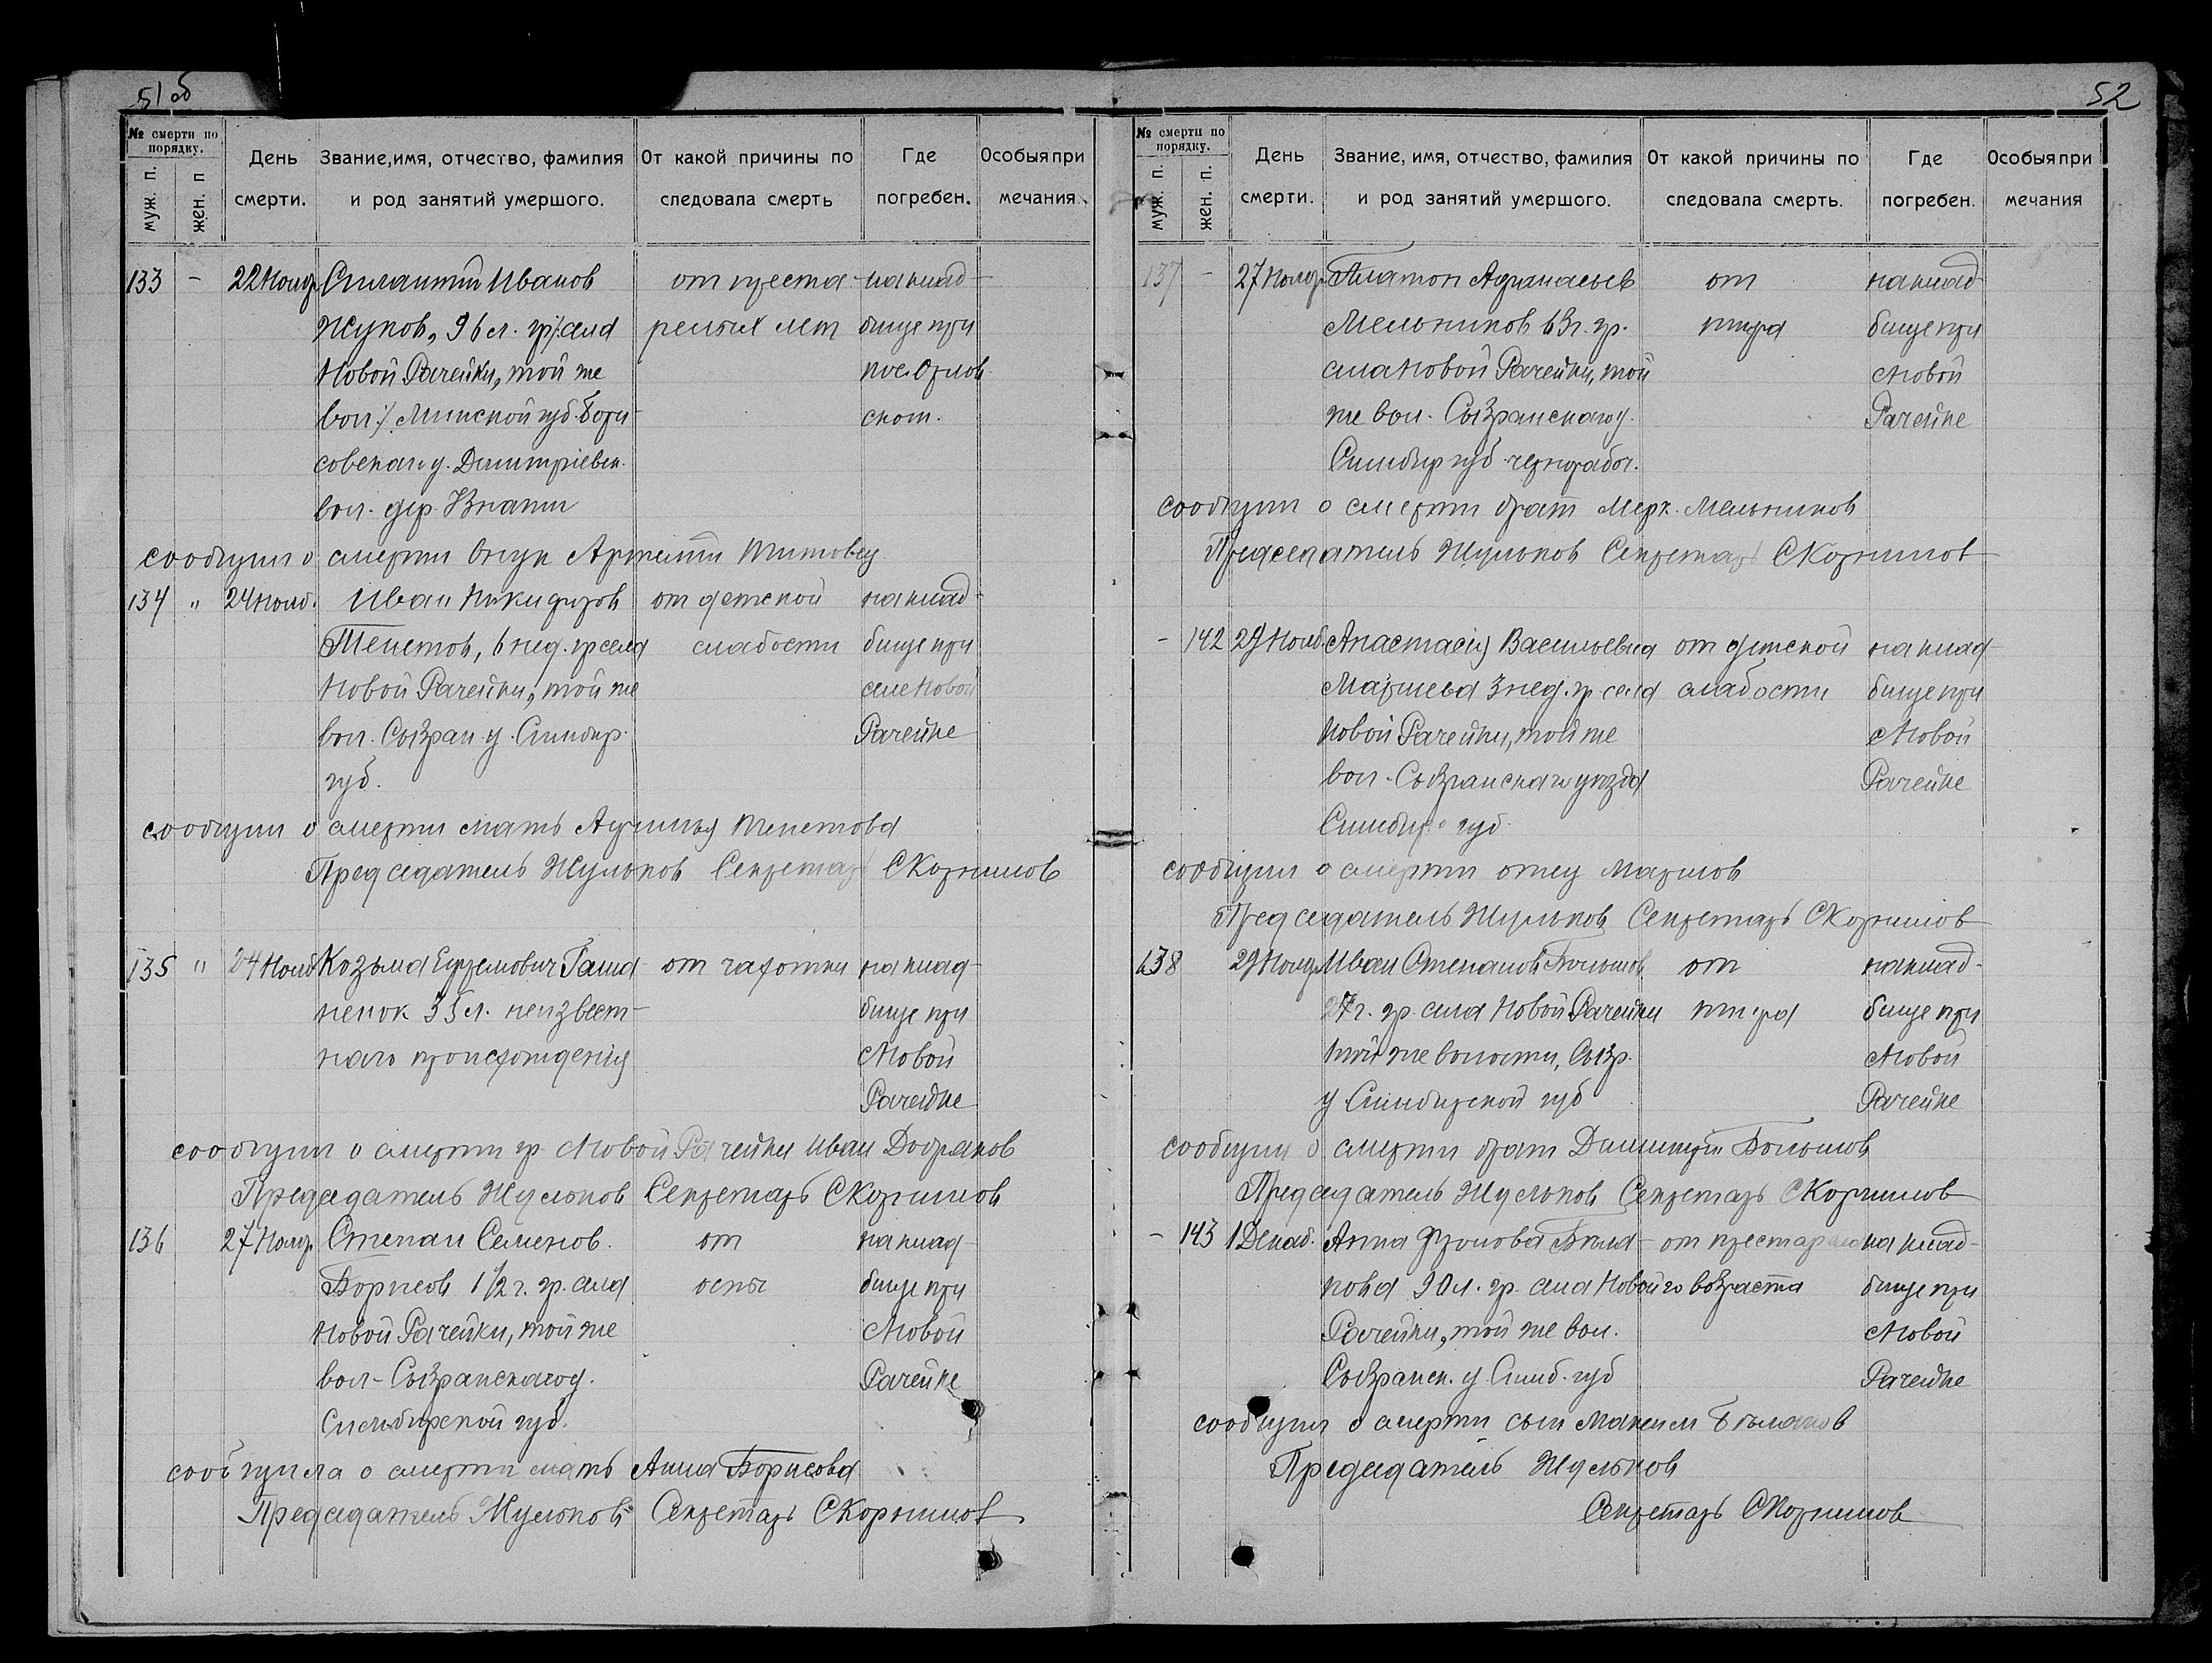 51 об
№ смерти по порядку.
муж. п.
жен. п
День смерти.
Звание, имя, отчество, фамилия и род занятий умершого.
От какой причины последовала смерть
Где погребен.
Особыя примечания.
133 - 22 Нояб. Силантий Иванов от преста- на клад-
Жуков, 96 л. гр. села релых лет бище при
Новой Рачейки, той же пос. Орлов
вол. Минской губ. Бори- ском.
совскаго у. Димитрiевск.
вол. дер.
сообщил о смерти внук
134 " 24 Нояб. Иван Никифоров от детской на клад-
Тепетов, 6 нед. гр села слабости бище при
Новой Рачейки, той же селе Новой
вол. Сызран. у. Симбир. Рачейке
губ.
сообщил о смерти мать Тепетова
Председатель Жульков Секретарь СКорнилов
135 " 24 Нояб Козьма Ефремович от чахотки на клад-
ненок 35 л. неизвест- бище при
наго происхождения Новой
Рачейке
сообщил о смерти гр. Новой Рачейки Иван Добряков
Председатель Жульков Секретарь СКорнилов
136 27 Нояб. Степан Семенов. от на клад-
Борисов 1 1/2 г. гр. села оспы бище при
Новой Рачейки, той же Новой
вол- Сызранскаго у. Рачейке
Симбирской губ.
сообщила о смерти мать Анна Борисова
Председатель Жульков Секретарь СКорнилов
52
№ смерти по порядку.
муж. п.
жен. п.
День смерти.
Звание, имя, отчество, фамилия и род занятий умершого.
От какой причины последовала смерть.
Где погребен.
Особыя примечания
137 - 27 Нояб. Платон Афанасьев от на клад-
Мельников 63 г. гр. тифа бище при
села Новой Рачейки, той Новой
же вол. Сызранскаго у. Рачейке
Симбир губ. чернорабоч.
сообщил о смерти брат Мельников
Председатель Жульков Секретарь СКорнилов
- 142 29 Нояб. Анастасiя Васильевна от детской на клад-
3 нед. гр села слабости бище при
Новой Рачейки, той же Новой
вол. Сызранскаго уезда Рачейке
Симбир губ.
сообщил о смерти отец
Председатель Жульков Секретарь СКорнилов
138 29 Нояб. Иван Степанов Большов от на клад-
27 г. гр. села Новой Рачейки тифа бище при
той же волости, Сызр. Новой
у Симбирской губ Рачейке
сообщил о смерти брат Димитрий Большов
Председатель Жульков Секретарь СКорнилов
- 143 1 Декаб. Анна Фролова Була- от престарела на клад-
кова 90 л. гр. села Новой го возраста бище при
Рачейки, той же вол. Новой
Сызранск. у. Симб. губ Рачейке
сообщил о смерти сын Максим
Председатель Жульков
Секретарь СКорнилов